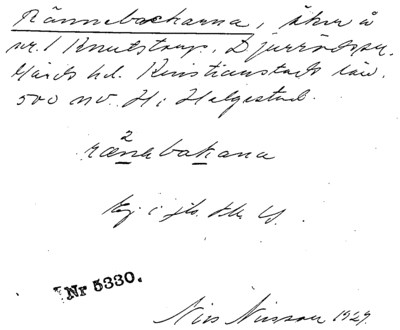 Rännebackarna, åker å
nr. 1 Knutstorp, Djurrödssn.
Gärds hd. Kristianstads län.
500 m NV. H; Helgestad.
2
ränebakana
Ej i jb. el. 
Nr 5330.
Nils Nilsson 1929.